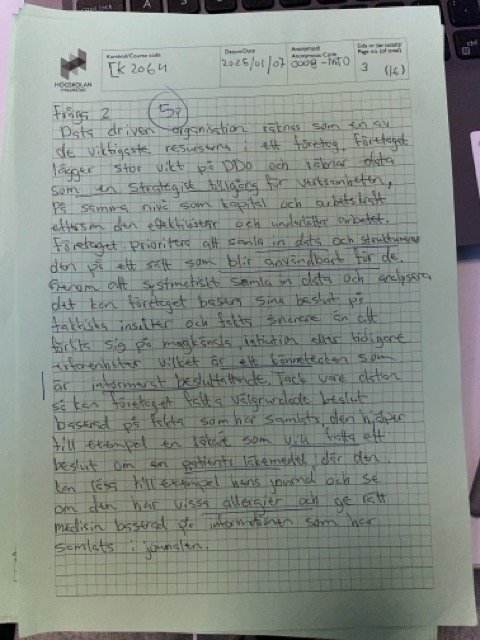 HÖGSKOLAN
I HALMSTAD
Kurskod/Course code
IK2064
Datum/Date
2025/01/07
Anonymkod
Anonymous Code
0008-INTO
Sida nr (av totalt)
Page no. (of total)
3 (16)
Fråga 2
5p
Data driven organisation räknas som en av
de viktigaste resurserna i ett företag. Företaget
lägger stor vikt på DDO och räknar data
som en strategisk tillgång för verksamheten,
på samma nivå som kapital och arbetskraft
eftersom den effektiviserar och underlättar arbetet.
Företaget prioritera att samla in data och strukturera
den på ett sätt som blir användbart för de.
Genom att systematiskt samla in data och analysera
det kan företaget basera sina beslut på
faktiska insikter och fakta snarare än att
förlita sig på magkänsla intuition eller tidigare
erfarenheter vilket är ett kännetecken som
är informerat beslutfattande. Tack vare datan
så kan företaget fatta välgrundade beslut
baserad på fakta som har samlats, den hjälper
till exempel en läkare som vill fatta ett
beslut om en patients läkemedel, där den
kan läsa till exempel hans journal och se
om den har vissa allergier och ge rätt
medisin baserad på informationen som har
samlats i journalen.